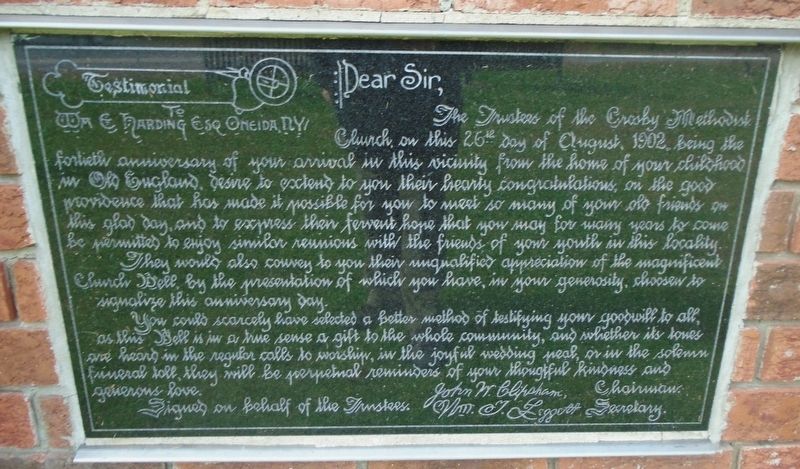 Testimonial
To
Wm E. Harding Esq Oneida, N.Y.
Dear Sir,
The Trustees of the Crosby Methodist
Church, on this 26th day of August, 1902, being the
fortieth anniversary of your arrival in this vicinity from the home of your childhood
in Old England, desire to extend to you their hearty congratulations, on the good
providence that has made it possible for you to meet so many of your old friends on
this glad day, and to express their fervent hope that you may for many years to come
be permitted to enjoy similar reunions with the friends of your youth in this locality.
They would also convey to you their unqualified appreciation of the magnificent
Church Bell, by the presentation of which you have, in your generosity, choosen to
signalize this anniversary day.
You could scarcely have selected a better method of testifying your goodwill to all,
as this Bell is in a true sense a gift to the whole community, and whether its tones
are heard in the regular calls to worship, in the joyful wedding peal, or in the solemn
funeral toll, they will be perpetual reminders of your thoughtful kindness and
generous love.
John W. Chairman.
Signed on behalf of the Trustees. Wm. T. Leggett Secretary.